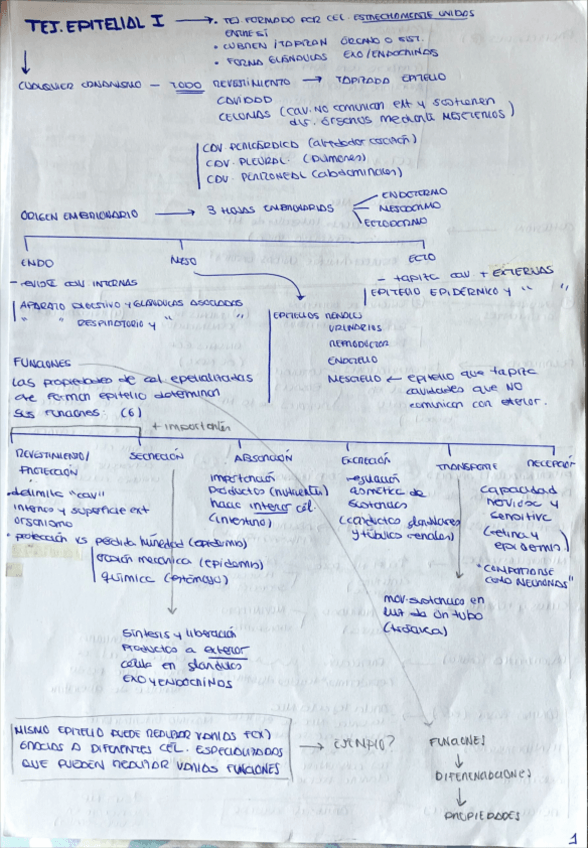 TEJ. EPITELIAL I → • TEJ FORMADO POR CEL. ESTRECHAMENTE UNIDAS
ENTRE SÍ
• CUBREN / TAPIZAN ÓRGANO O SIST.
• FORMA GLÁNDULAS EXO/ENDOCRINAS
CUALQUIER CONDUCTISMO — TODO REVESTIMIENTO → TAPIZADO EPITELIO
CAVIDAD
CELOMAS (cav. NO comunican ext y sostienen
dif. órganos mediante MESENTERIOS)
CAV. PERICÁRDICA (alrededor corazón)
CAV. PLEURAL. (pulmones)
CAV. PERITONEAL (abdominales)
ORIGEN EMBRIONARIO → 3 HOJAS EMBRIONARIAS
ENDODERMO
MESODERMO
ECTODERMO
ENDO
MESO
ECTO
- reviste cav internas
- tapiza cav + EXTERNAS
APARATO DIGESTIVO Y GLÁNDULAS ASOCIADAS
" " RESPIRATORIO y " "
EPITELIO EPIDÉRMICO y " "
EPITELIOS RENALES
URINARIOS
REPRODUCTOR
ENDOTELIO
MESOTELIO ← epitelio que tapiza
cavidades que NO
comunican con exterior.
FUNCIONES
Las propiedades de cel especializadas
que forman epitelio determinan
sus funciones (6)
+ importantes
REVESTIMIENTO/
PROTECCIÓN
SECRECIÓN
ABSORCIÓN
EXCRECIÓN
TRANSPORTE
RECEPCIÓN
• delimita "cav"
interna y superficie ext
organismo
• protección vs pérdida humedad (epidermis)
erosión mecánica (epidermis)
química (estómago)
importación
productos (nutrientes)
hacia interior cél.
(intestino)
regulación
osmótica de
sustancias
(conductos glandulares
y túbulo renales)
capacidad
nerviosa y
sensitiva
(retina y
epidermis)
"COMPORTARSE
COMO NEURONAS"
mov. sustancias en
luz de un tubo
(tráquea)
síntesis y liberación
productos a exterior
célula en glándulas
EXO y ENDOCRINAS
MISMO EPITELIO PUEDE REALIZAR VARIAS FCX)
GRACIAS A DIFERENTES CÉL. ESPECIALIZADAS
QUE PUEDEN REALIZAR VARIAS FUNCIONES
→ EJEMPLO?
FUNCIONES
↓
DIFERENCIACIONES
↓
PROPIEDADES
1